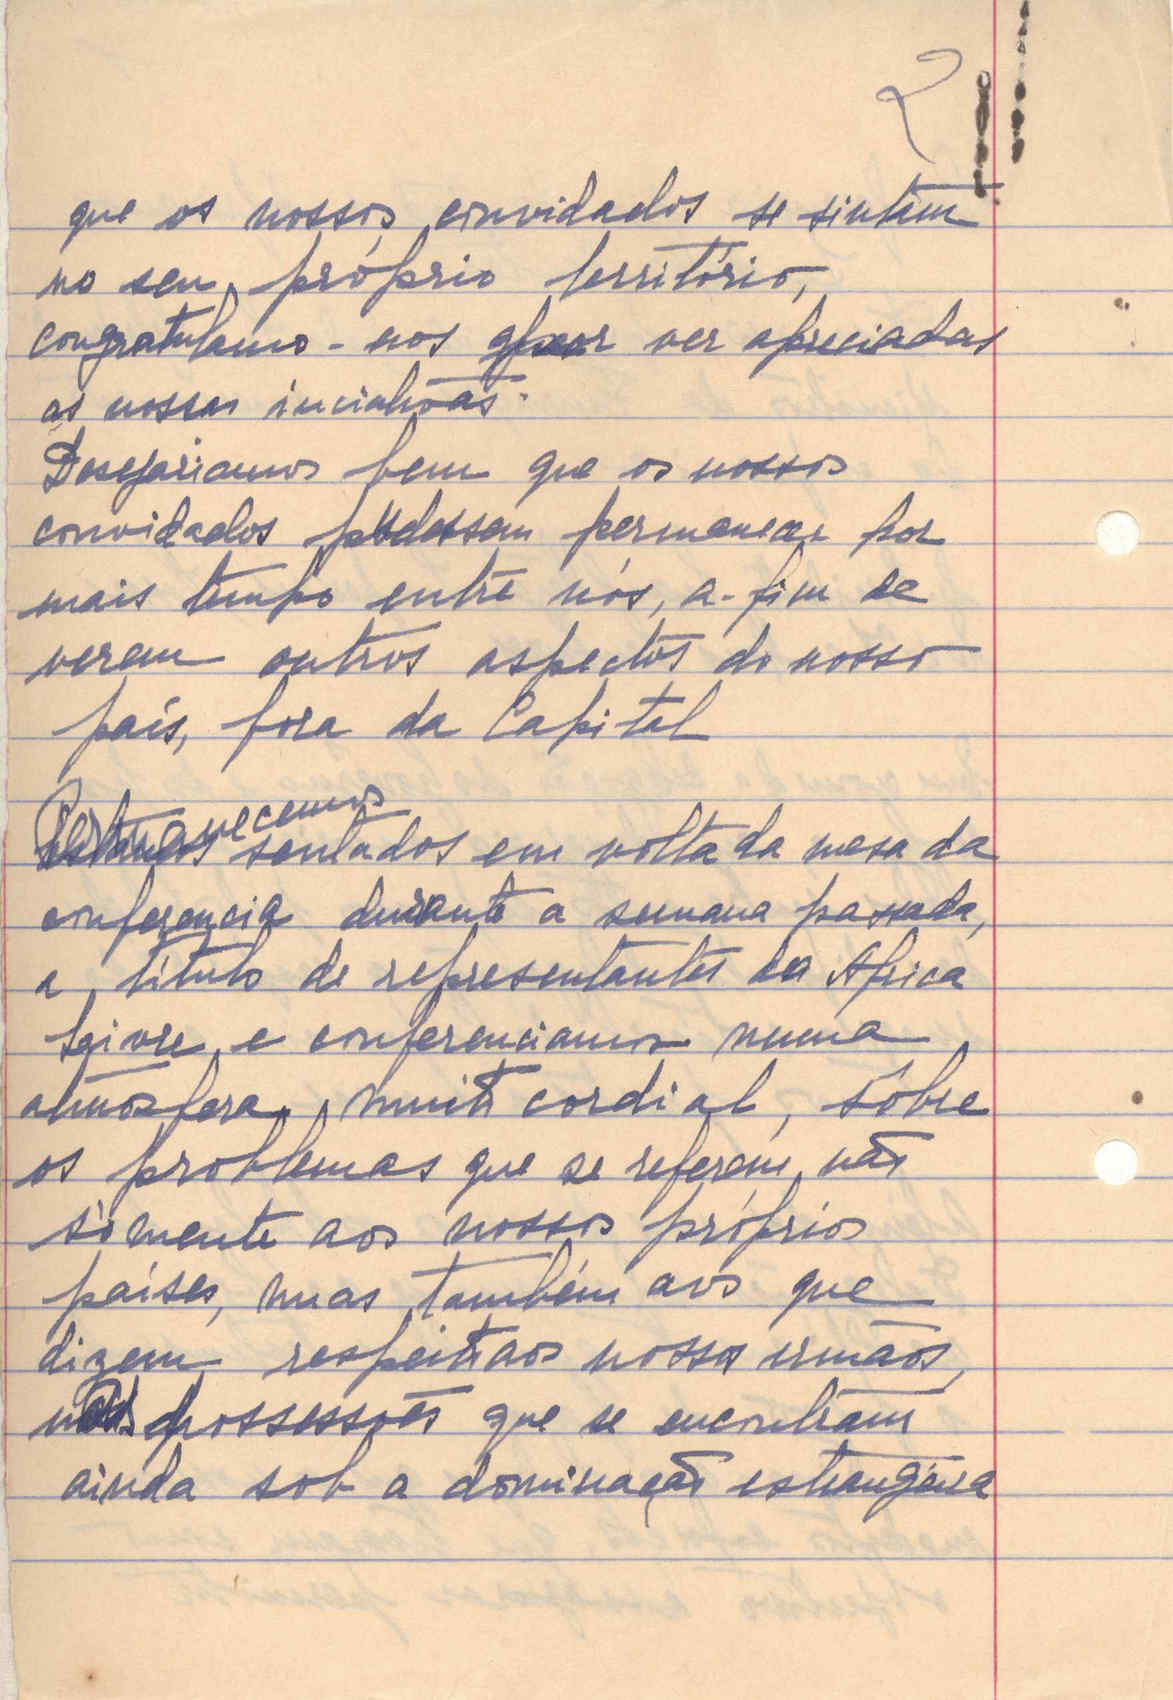 2
que os nossos convidados se sintam
no seu próprio território,
congratulamo-nos por ver apreciadas
as nossas inciativas.
Desejariamos bem que os nossos
convidados pudessem permanecer por
mais tempo entre nós, a-fim de
verem outros aspectos do nosso
país, fora da Capital
Permanecemos
sentados em volta da mesa da
conferencia durante a semana passada,
a título de representantes da Africa
Livre e conferenciamos numa
atmosfera muito cordial, sôbre
os problemas que se referem não
sòmente aos nossos próprios
países, mas também aos que
dizem respeito aos nossos irmãos,
nas possessões que se encontram
ainda sob a dominação estrangeira